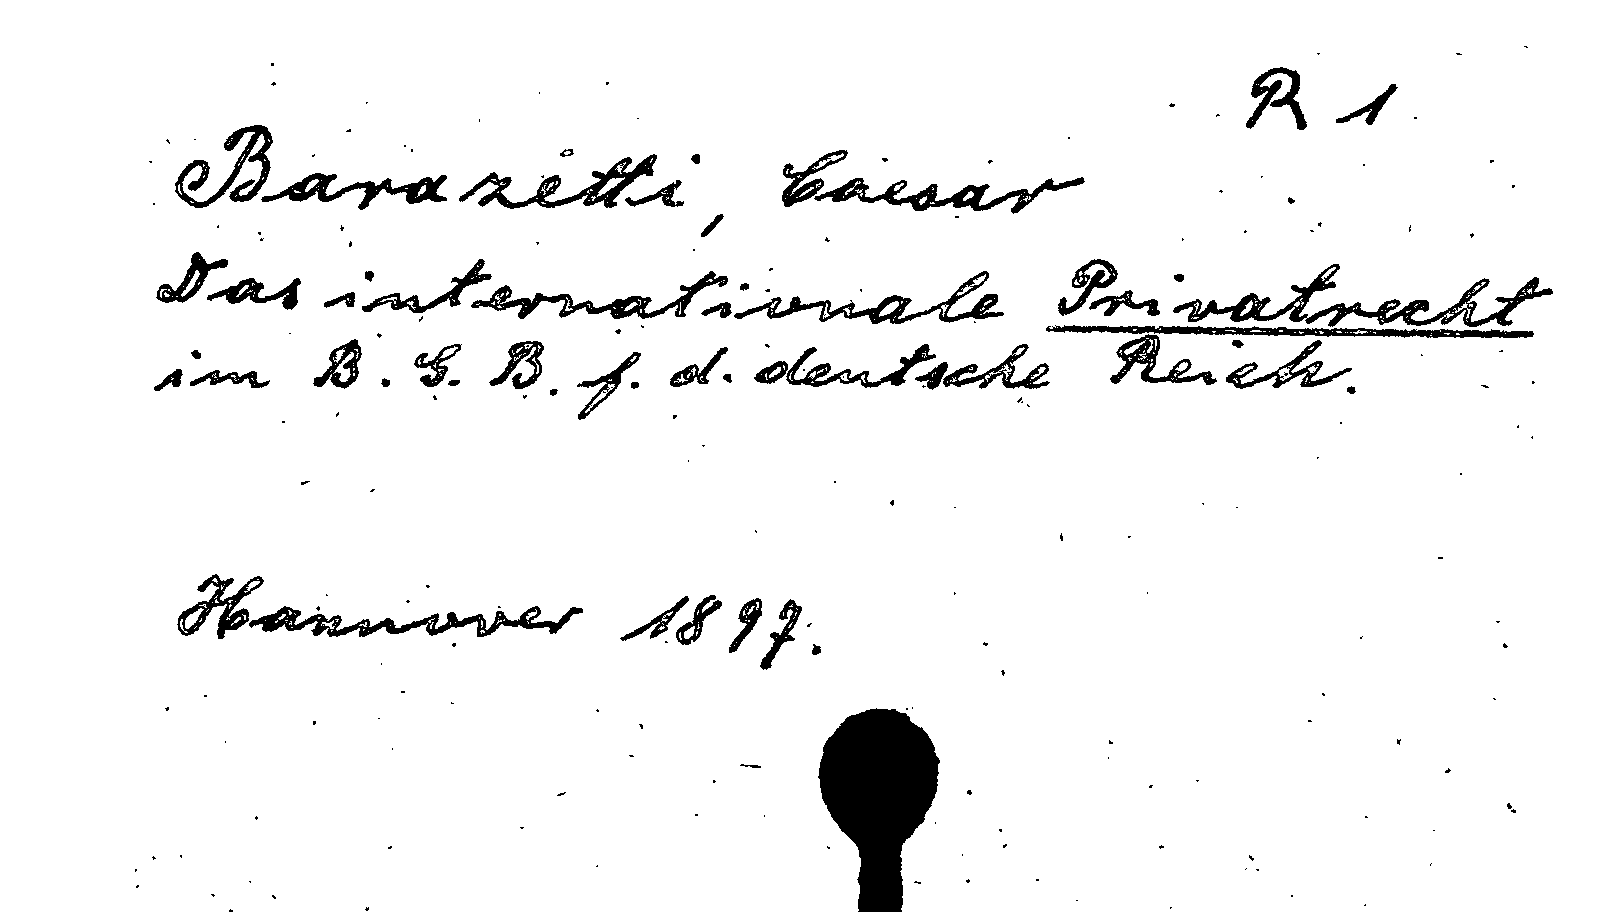 R 1
Barazetti, Caesar
Das internationale Privatrecht
im B. G. B. f. d. deutsche Reich.
Hannover 1897.